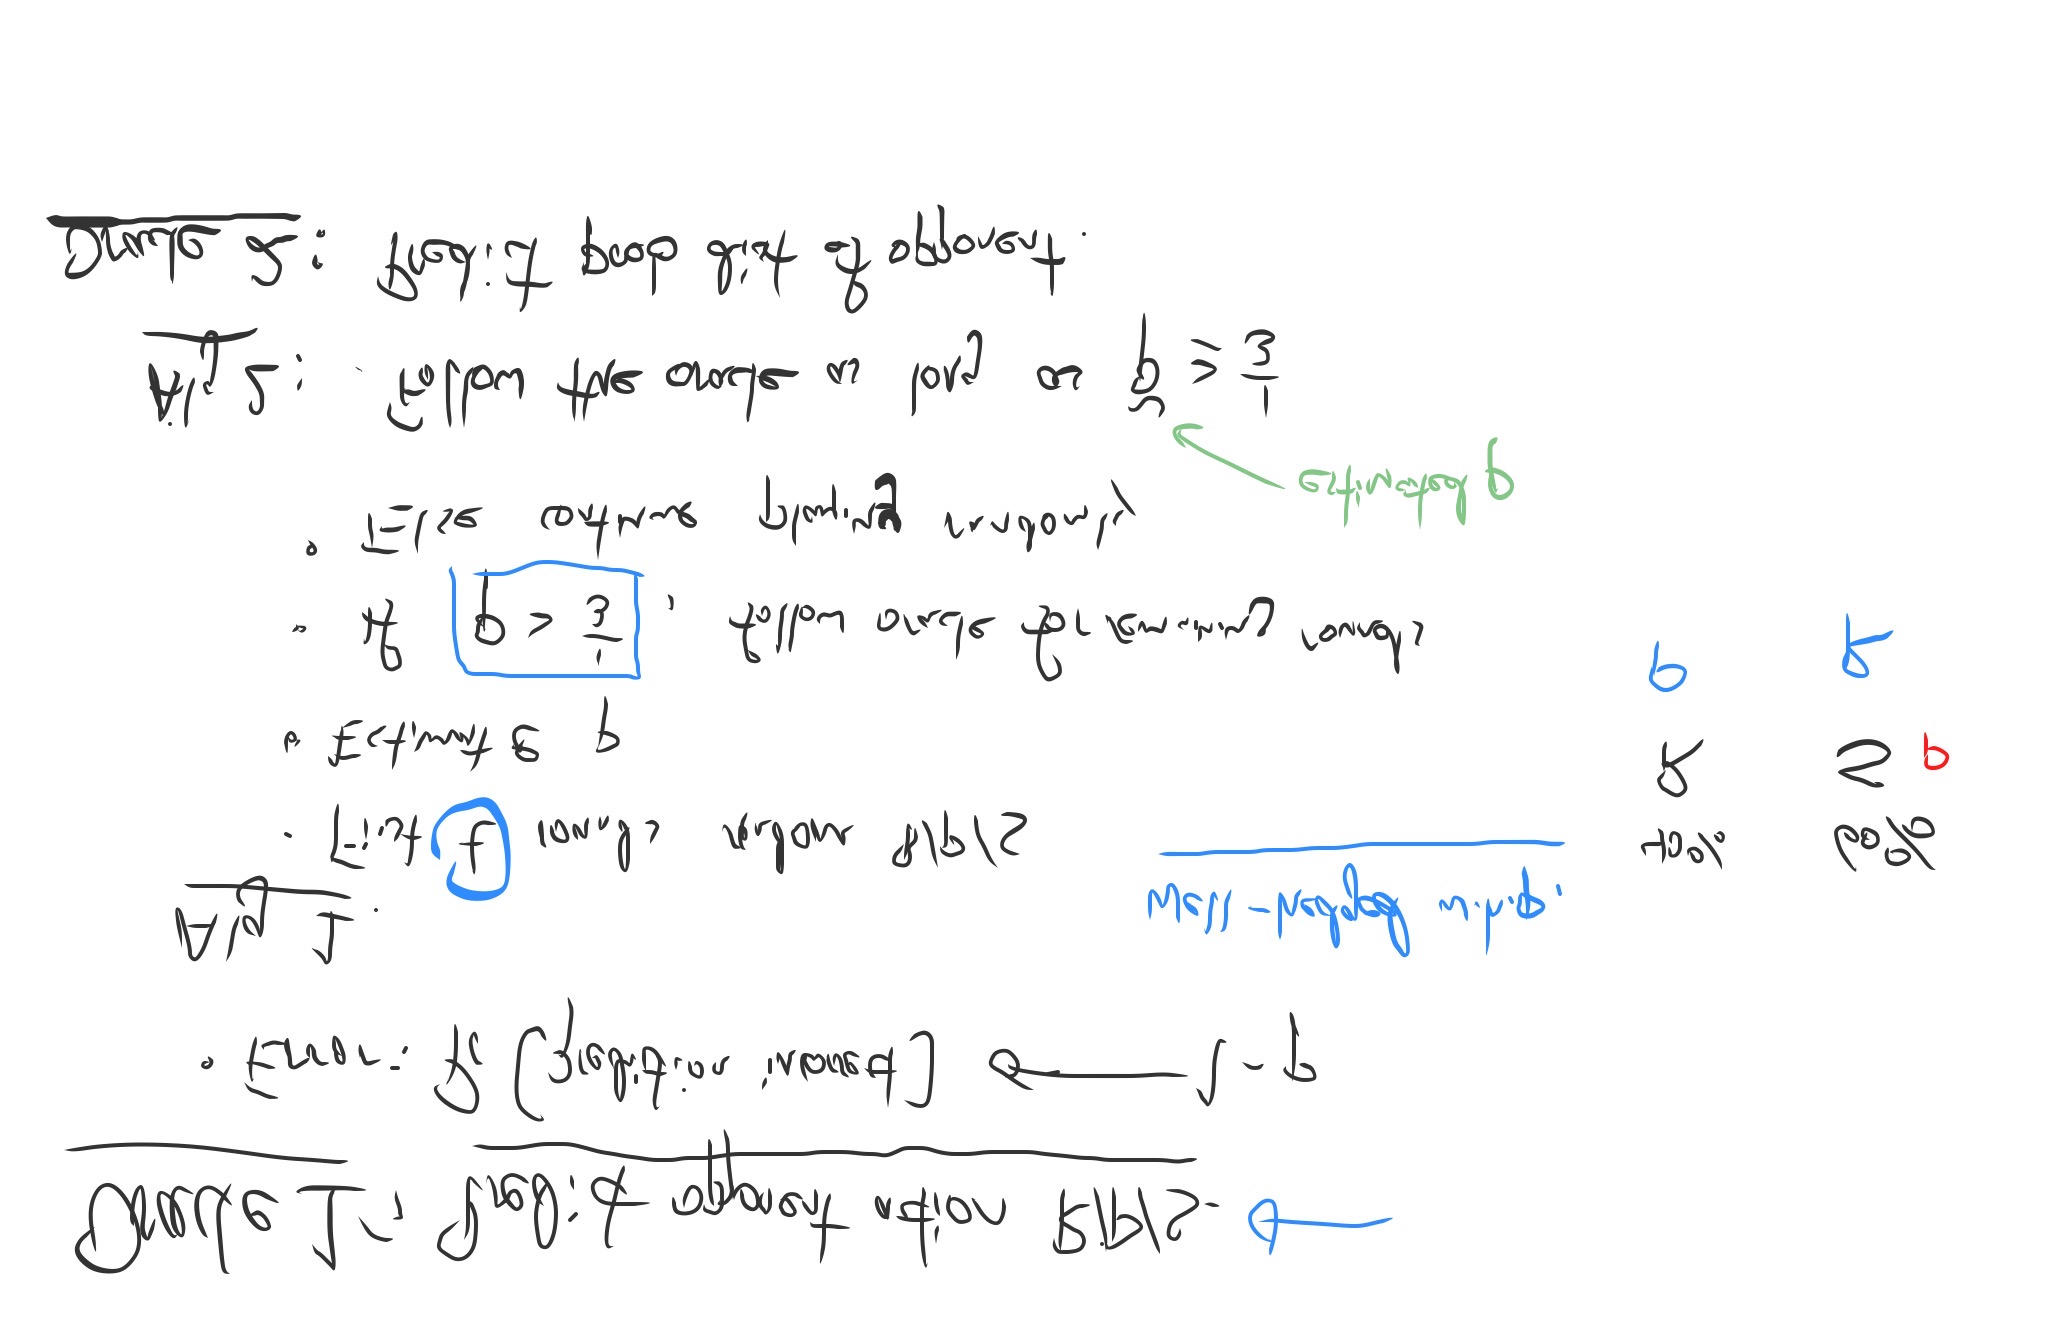 Oracle 1: Predict opponent action R/P/S.
• Error: Pr [prediction incorrect] ← 1-p
Alg 1.
well-hedged w.h.p.
• First t rounds random R/P/S
40% 60%
R S P
P R
• Estimate p
• If p > 1/3, follow oracle for remaining rounds
• Else continue playing randomly
estimated p
Alg 2: Follow the oracle as long as p̃ ≥ 1/3
Oracle 2: Predict prob dist of opponent.